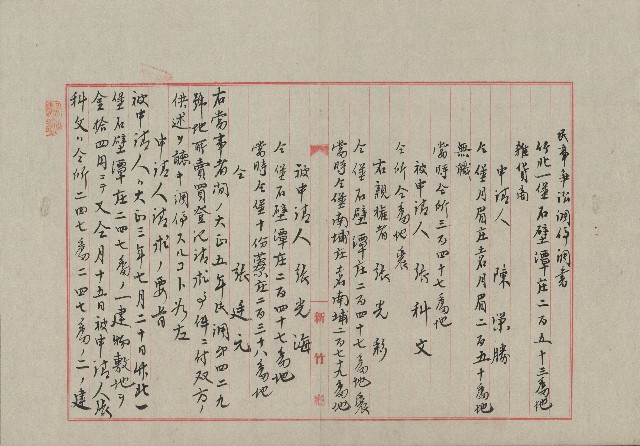 民事爭訟調停調書
竹北一堡石壁潭庄二百五十三番地
雜貨商
申請人 陳榮勝
仝堡月眉庄土名月眉二百五十番地
無職
當時仝所三百四十七番地
被申請人 張科文
仝所仝番地農
右親權者 張光彩
仝堡石壁潭庄二百四十七番地農
當時仝堡南埔庄土名南埔二百七十九番地
被申請人 張光海
仝堡石壁潭庄二百四十七番地
當時仝堡十份藔庄二百三十八番地
仝 張廷元
右當事者間ノ大正五年民調第四二九
號地所賣買登記請求ノ件ニ付双方ノ
供述ヲ聽キ調停スルコト如左
申請人請求ノ要旨
被申請人ハ大正三年七月二十日竹北一
堡石壁潭庄二四七番ノ一建物敷地ヲ
金拾四円ニテ又仝月十五日被申請人張
科文ハ仝所二四七番二四七番ノ二ノ建
新竹廳